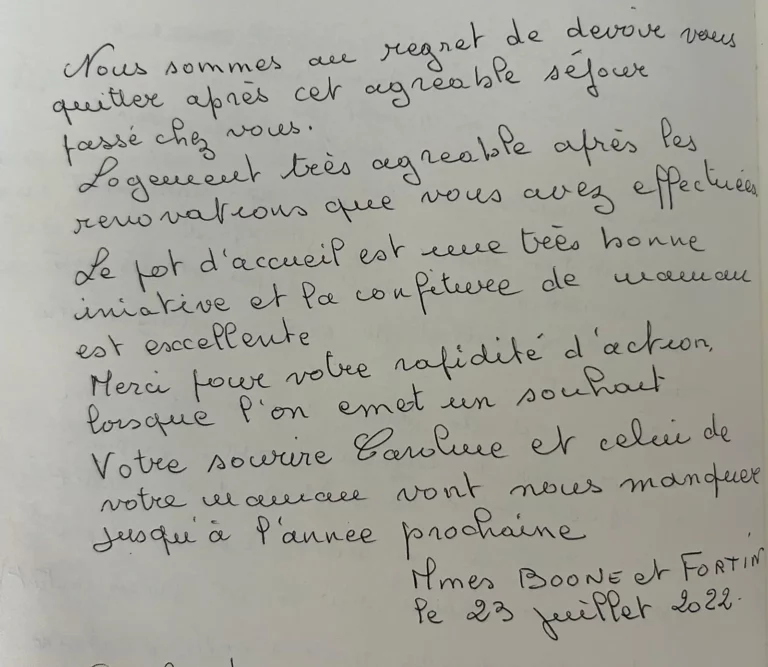 Nous sommes au regret de devoir vous
quitter après cet agreable séjour
passé chez vous.
Logement très agreable après les
renovations que vous avez effectuées
Le pot d'accueil est une très bonne
iniative et la confiture de maman
est excellente
Merci pour votre rapidité d'action,
lorsque l'on emet un souhait
Votre sourire Caroline et celui de
votre maman vont nous manquer
jusqu'à l'année prochaine
Mmes BOONE et FORTIN
le 23 juillet 2022.